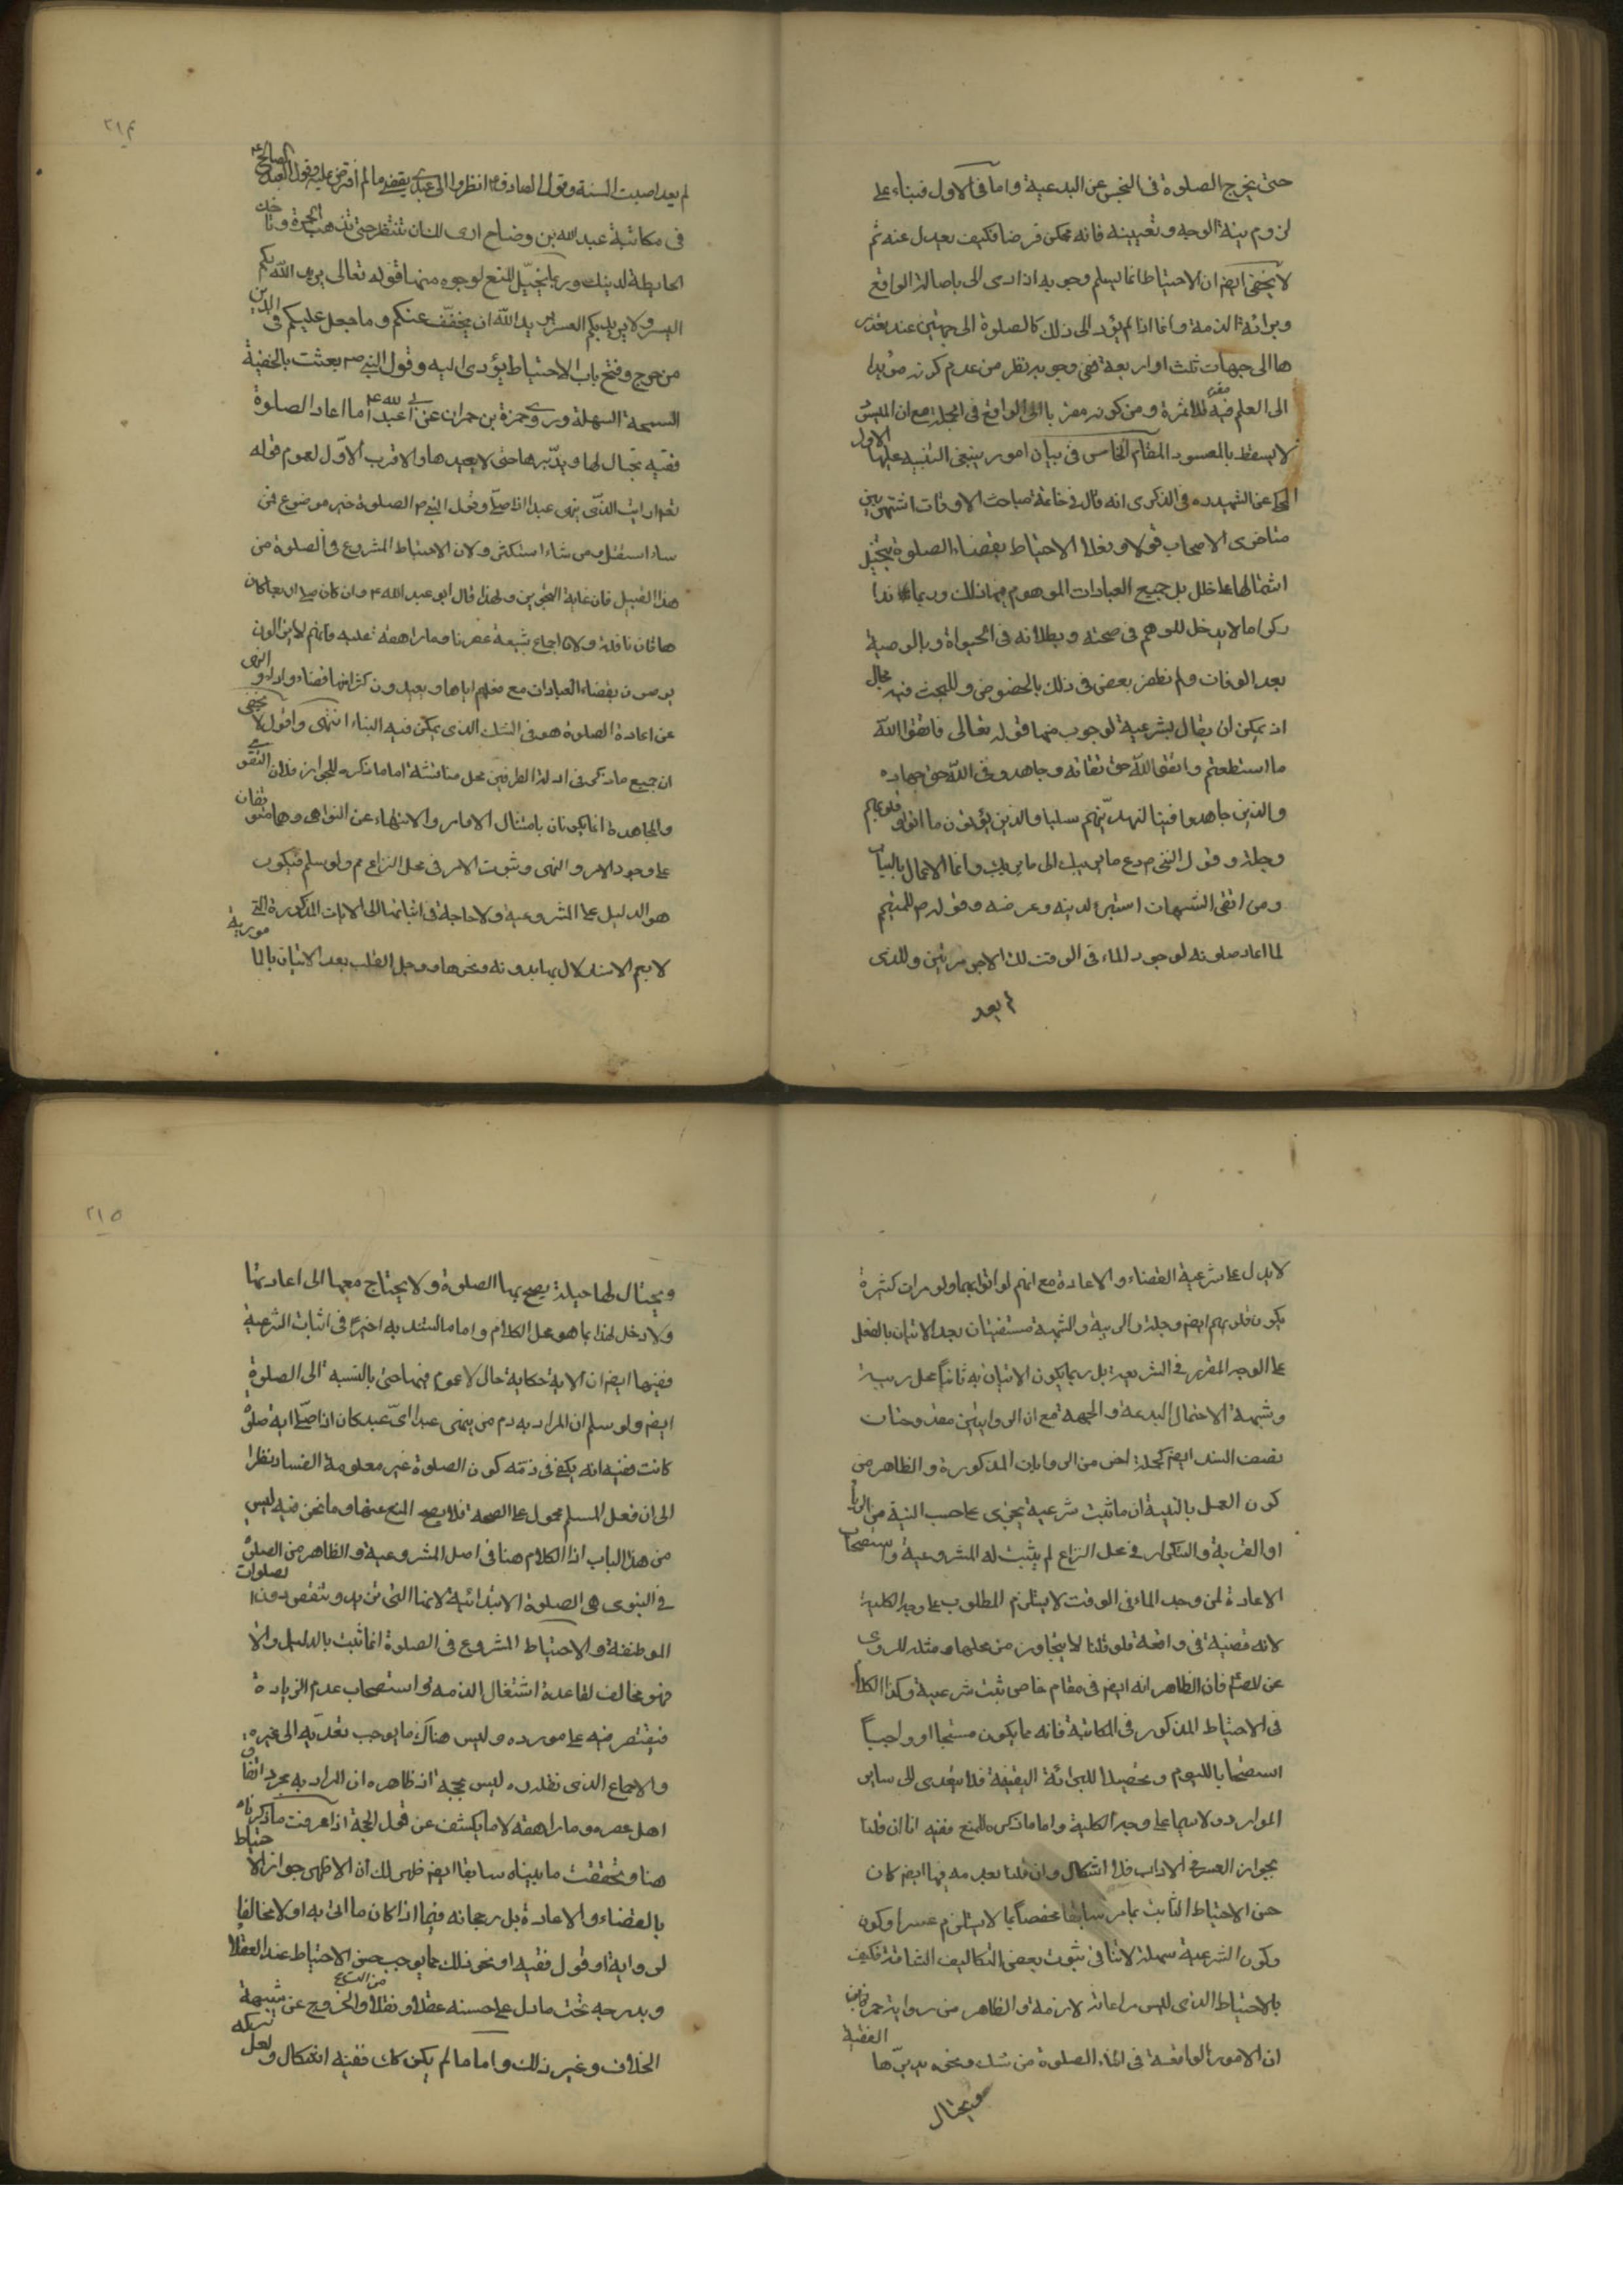 حتى يخرج الصلوة فى النجس عن البدعية واما فى الاول فبناء على
لزوم نية الوجه وتعيينه فانه ممكن فرضا فكيف يعدل عنه ثم
لا يخفى ايضا ان الاحتياط انما يسلم وجوبه اذا ادى الى باصالة الواقع
وبرائة الذمة واما اذا لم يؤد الى ذلك كالصلوة الى جهتين عند تعذر
ها الى جهات ثلث او اربعة ففى وجوبه نظر من عدم كونه مؤديا
الى العلم فيه فلا ثمرة ومن كونه مقربا الى الواقع فى الجملة مع ان الميسور
لا يسقط بالمعسور المقام الخامس فى بيان امور ينبغى التنبيه عليها الاول
حكى عن الشهيد ره فى الذكرى انه قال فى خاتمة مباحث الاوقات اشتهر بين
متاخرى الاصحاب قولا وفعلا الاحتياط بقضاء الصلوة بتخيل
اشتمالها على خلل بل جميع العبادات الموهوم فيها ذلك وربما
تداركوا ما لا يدخل للوهم فى صحته وبطلانه فى الحيواة وبالوصية
بعد الوفات ولم نظفر بعض فى ذلك بالخصوص وللبحث فيه مجال
اذ يمكن ان يقال بشرعية لوجوب منها قوله تعالى فاتقوا الله
ما استطعتم واتقوا الله حق تقاته وجاهدوا فى الله حق جهاده
والذين جاهدوا فينا لنهدينهم سبلنا والذين يؤتون ما اتوا وقلوبهم
وجلة وقول النبى ص دع ما يريبك الى ما لا يريبك وانما الاعمال بالنيات
ومن اتقى الشبهات استبرء لدينه وعرضه وقوله ص للمتيمم
لما اعاد صلوته لوجود الماء فى الوقت لك الاجر مرتين وللذى
لم يعد
٢١٤
لم يعد اصبت السنة وقول الصادق ع انظروا الى عبدى يقضى ما لم افترض عليه وقول العبد الصالح ع
فى مكاتبة عبد الله بن وضاح ارى لك ان تنتظر حتى تذهب الحمرة وتاخذ
الحايطة لدينك وربما يتخيل المنع لوجوه منها قوله تعالى يريد الله بكم
اليسر ولا يريد بكم العسر يريد الله ان يخفف عنكم وما جعل عليكم فى الدين
من حرج وفتح باب الاحتياط يؤدى اليه وقول النبى ص بعثت بالحنفية
السمحة السهلة وروى حمزة بن حمران عن ابى عبد الله ع ما اعاد الصلوة
فقيه يحتال لها ويدبرها حتى لا يعيدها والاقرب الاول لعموم قوله
تع ارايت الذى ينهى عبدا اذا صلى وقول النبى ص الصلوة خير موضوع فمن
شاء استقل ومن شاء استكثر ولان الاحتياط المشروع فى الصلوة من
هذا القبيل فان غاية التجويز ولهذا قال ابو عبد الله ع وان كان صلى اربعا كان
هاتان نافلة ولان اجماع شيعة عصرنا وما راهقه عليه فانهم لا يزالون
يوصون بقضاء العبادات مع فعلهم اياها ويعيدون كثرا منها قضاء واداء والنهى
عن اعادة الصلوة هو فى الشك الذى يمكن فيه البناء انتهى واقول لا يخفى
ان جميع ما ذكر فى ادلة الطرفين محل مناقشة اما ما ذكره للجواز فلان التقوى
والمجاهدة انما يكونان بامتثال الاوامر والانتهاء عن النواهى وهما متوقفان
على وجود الامر والنهى وثبوت الامر فى محل النزاع مم ولو سلم فيكون
هو الدليل على المشروعية ولا حاجة فى اثباتها الى الايات المذكورة التى
لا يتم الاستدلال بها بدونه ونحوها ووجل القلب بعد الاتيان بالمامور به
لا يدل على شرعية القضاء والاعادة مع انهم لو اتوا بهما ولو مرات كثيرة
يكون قلوبهم ايضا وجلة والريبة والشبهة منتفيتان بعد الاتيان بالفعل
على الوجه المقرر فى الشريعة بل ربما يكون الاتيان به ثانيا محل ريبة
وشبهة الاحتمال البدعة والجهة مع ان الروايتين مقدوحتان
بضعف السند ايضا كجملة اخرى من الروايات المذكورة والظاهر من
كون العمل بالنية ان ما ثبت شرعية يجزى على حسب النية من الريا
او القربة والتكرار فى محل النزاع لم يثبت له المشروعية واستصحاب
الاعادة لمن وجد الماء فى الوقت لا يستلزم المطلوب على وجه الكلية
لانه قضية فى واقعة فلو قلنا لا يتجاوز من محلها ومثله المروى
عن الصم فان الظاهر انه ايضا فى مقام خاص ثبت شرعية وكذا الكلام
فى الاحتياط المذكور فى المكاتبة فانه مما يكون مستحبا او واجبا
استصحابا لليوم وتحصيلا للبرائة اليقينية فلا يتعدى الى ساير
الموارد ولا سيما على وجه الكلية واما ما ذكره للمنع ففيه انا ان قلنا
بجواز العسر فى الاداب فلا اشكال وان قلنا بعدمه فيها ايضا كان
حسن الاحتياط الثابت بما مر سابقا مخصصا بما لا يستلزم عسرا وكون
وكون الشرعية سهلة لا تنافى ثبوت بعض التكاليف الشاقة فكيف
بالاحتياط الذى ليس مراعاته لازمة والظاهر من رواية حمزة
ان الامور الواقعة فى اثناء الصلوة من شك ونحوه يدبرها الفقيه
ويحتال
٢١٥
ويحتال لها حيلة يصح بها الصلوة ولا يحتاج معها الى اعادتها
ولا دخل لهذا بما هو محل الكلام واما ما استند به اخيرا فى اثبات الشرعية
ففيها ايضا ان الاية حكاية حال لا عموم فيها حتى بالنسبة الى الصلوة
ايضا ولو سلم ان المراد به ذم من ينهى عبدا اى عبد كان اذا صلى اية صلوة
كانت ففيه انه يكفى فى ذمه كون الصلوة غير معلومة الفساد نظرا
الى ان فعل المسلم محمول على الصحة فلا يصح المنع عنها وما نحن فيه ليس
من هذا الباب اذ الكلام هنا فى اصل المشروعية والظاهر من الصلوة
فى النبوى هى الصلوة الابتدائية لانها التى تزيد وتنقص دون الصلوات
الموظفة والاحتياط المشروع فى الصلوة انما ثبت بالدليل والا
فهو مخالف لقاعدة اشتغال الذمه او استصحاب عدم الزيادة
فيقتصر فيه على مورده وليس هناك ما يوجب تعديه الى غيره
والاجماع الذى نقله ره ليس بحجة اذ ظاهره ان المراد به مجرد اتفاق
اهل عصره وما راهقه لا ما يكشف عن قول الحجة اذا عرفت ما ذكرناه
هنا وتحققت ما بيناه سابقا ايضا ظهر لك ان الاظهر جواز الاحتياط
بالقضاء والاعادة بل رجحانه فيما اذا كان ما اتى به اولا مخالفا
لرواية او قول فقيه او نحو ذلك مما يوجب حسن الاحتياط عند العقلاء
ويدرجه تحت ما دل على حسنه عقلا ونقلا من الشرع والخروج عن شبهة
الخلاف وغير ذلك واما ما لم يكن كك ففيه اشكال ولعل تركه